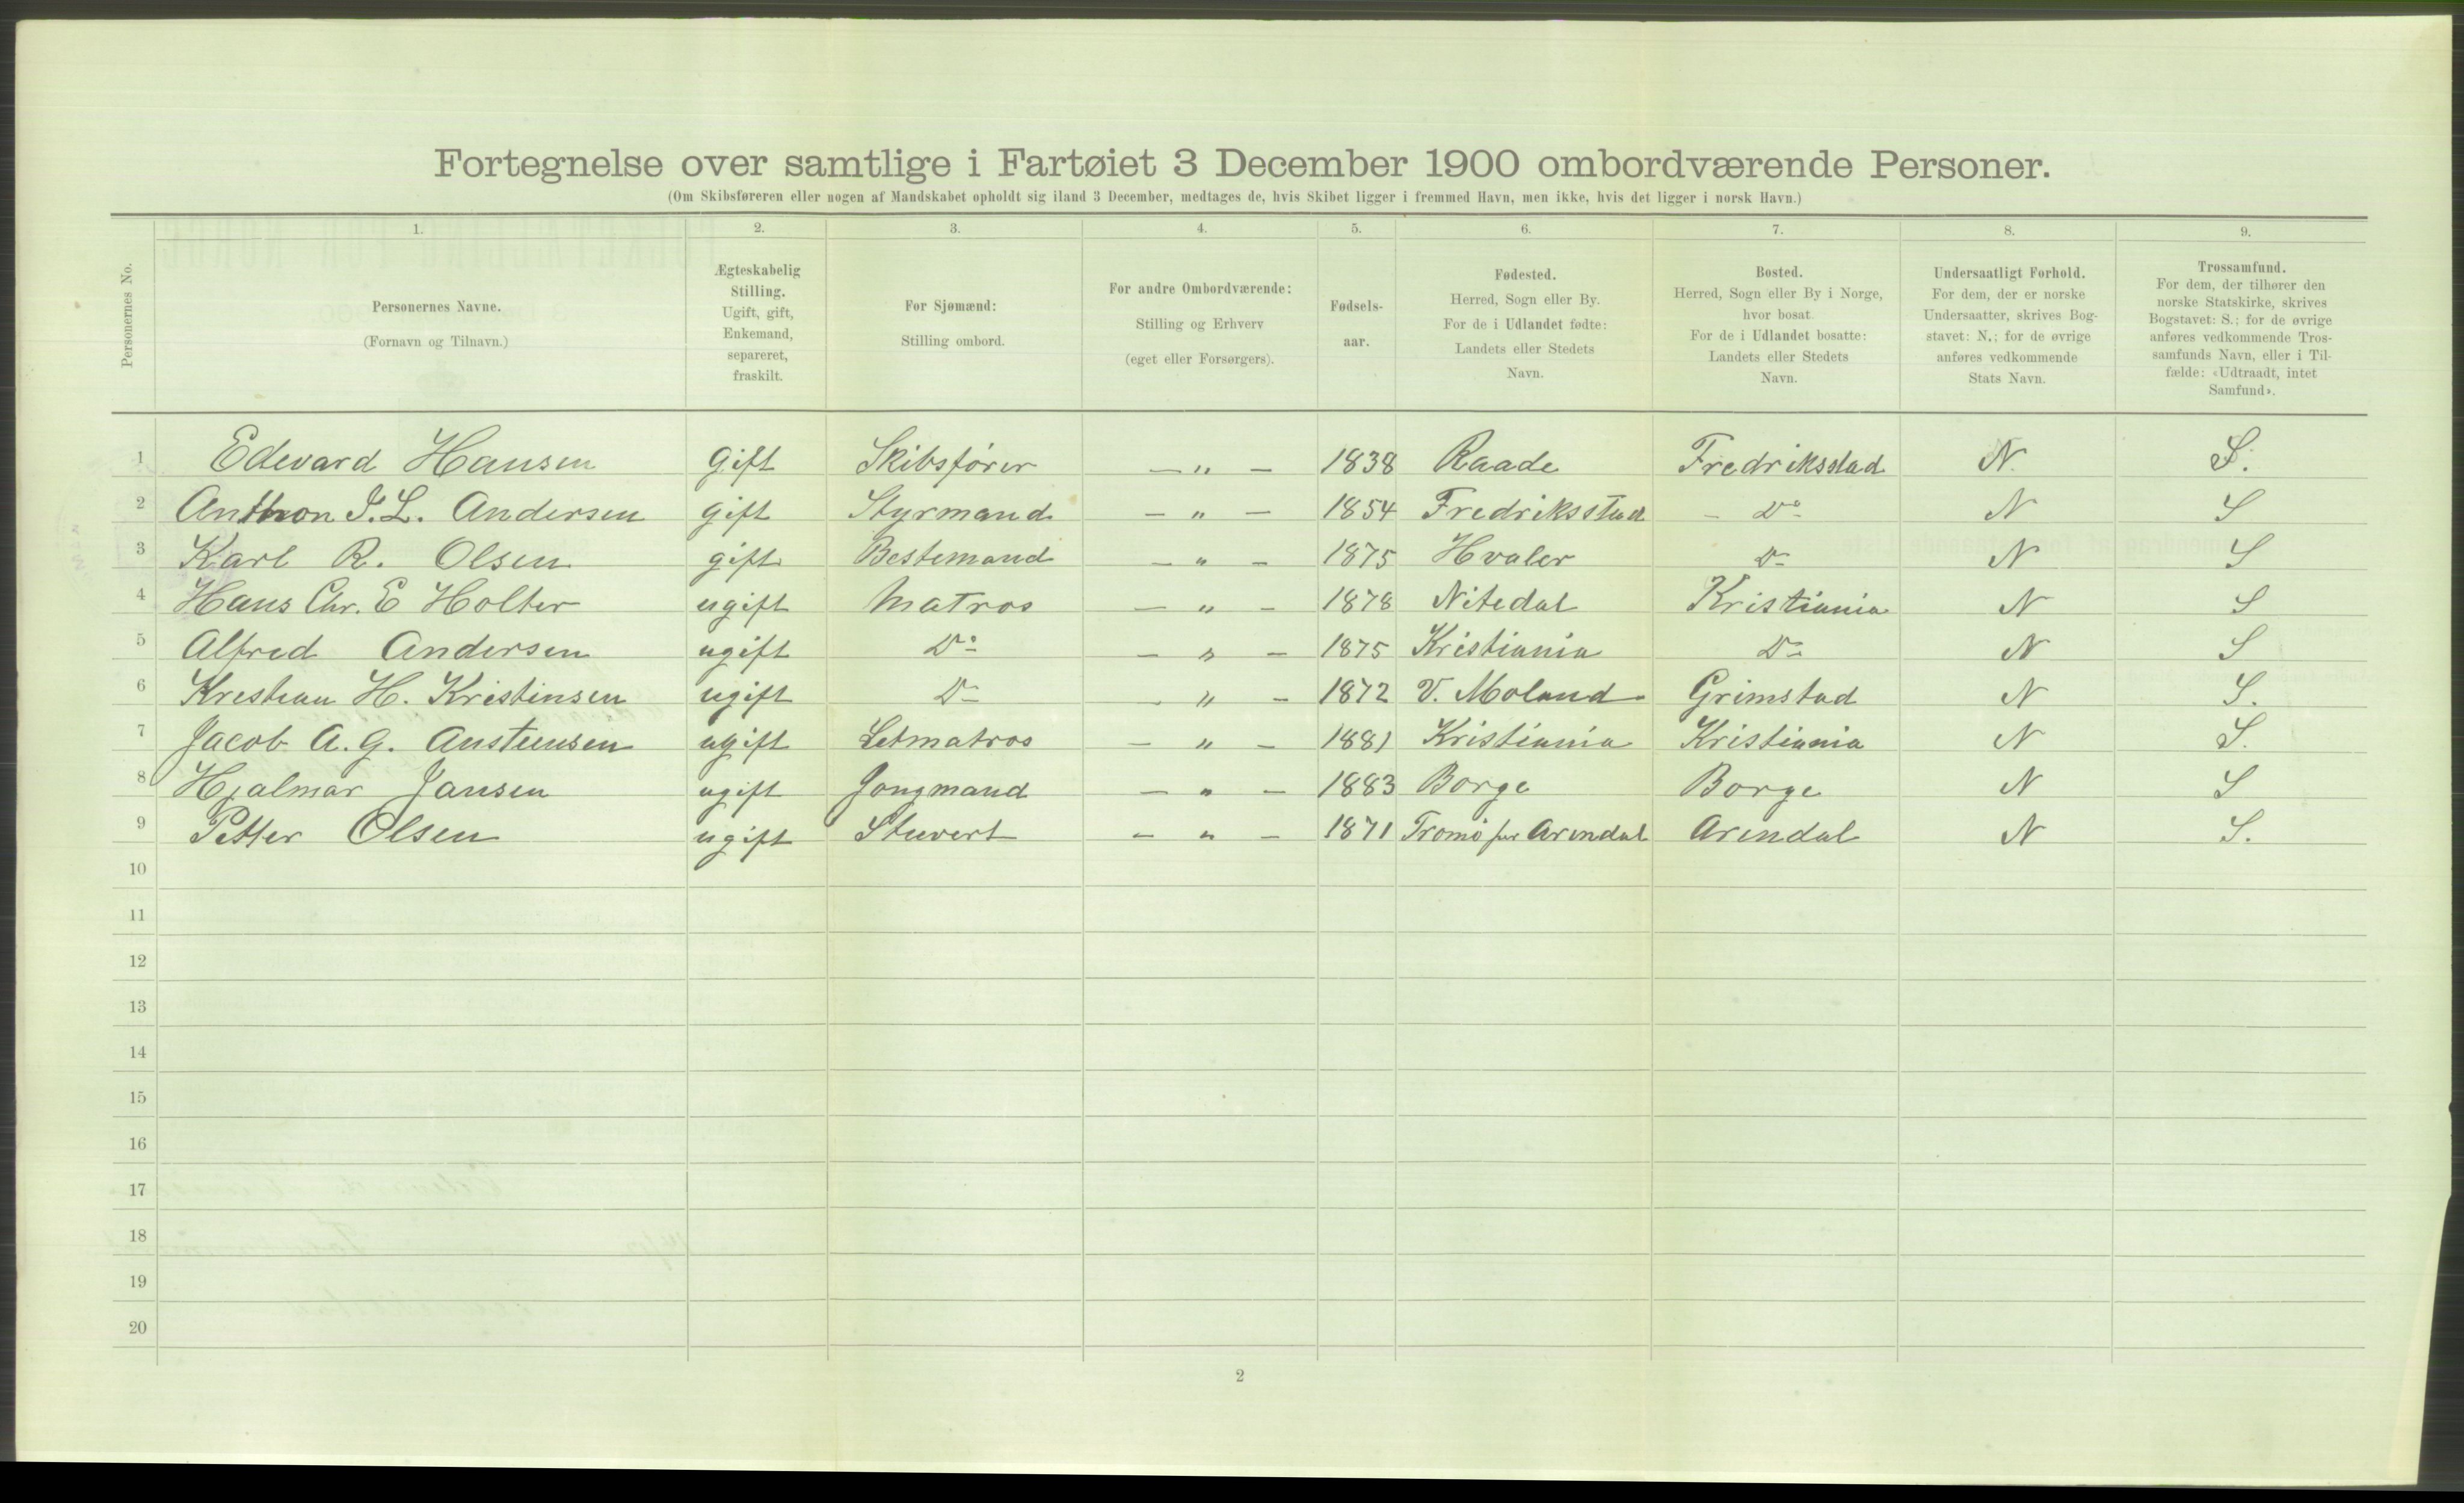 Fortegnelse over samtlige i Fartøiet 3 December 1900 ombordværende Personer.
(Om Skibsføreren eller nogen af Mandskabet opholdt sig iland 3 December, medtages de, hvis Skibet ligger i fremmed Havn, men ikke, hvis det ligger i norsk Havn.)
Personernes No.
1. 2. 3. 4. 5. 6. 7. 8. 9.
Personernes Navne.
(Fornavn og Tilnavn.)
Ægteskabelig
Stilling.
Ugift, gift,
Enkemand,
separeret,
fraskilt.
For Sjømænd:
Stilling ombord.
For andre Ombordværende:
Stilling og Erhverv
(eget eller Forsørgers).
Fødsels-
aar.
Fødested.
Herred, Sogn eller By.
For de i Udlandet fødte:
Landets eller Stedets
Navn.
Bosted.
Herred, Sogn eller By i Norge,
hvor bosat
For de i Udlandet bosatte:
Landets eller Stedets
Navn.
Undersaatligt Forhold.
For dem, der er norske
Undersaatter, skrives Bog-
stavet: N.; for de øvrige
anføres vedkommende
Stats Navn.
Trossamfund.
For dem, der tilhører den
norske Statskirke, skrives
Bogstavet: S.; for de øvrige
anføres vedkommende Tros-
samfunds Navn, eller i Til-
fælde: «Udtraadt, intet
Samfund».
1 Edevard Hansen gift Skibsfører – " – 1838 Raade Fredriksstad N. S.
2 Anthon J. L. Andersen gift Styrmand – " – 1854 Fredriksstad – Do – N S
3 Karl R. Olsen gift Bestemand – " – 1875 Hvaler Do N S
4 Hans Chr. E Holter ugift Matros – " – 1878 Nitedal Kristiania N S
5 Alfred Andersen ugift Do – " – 1875 Kristiania Do N S
6 Krestian H. Kristinsen ugift Do – " – 1872 V. Moland Grimstad N S.
7 Jacob A. G. Austensen ugift Letmatros – " – 1881 Kristiania Kristiania N S.
8 Hjalmar Jansen ugift Jongmand – " – 1883 Borge Borge N S
9 Petter Olsen ugift Stuvert – " – 1871 Tromø per Arendal Arendal N S.
10
11
12
13
14
15
16
17
18
19
20
2